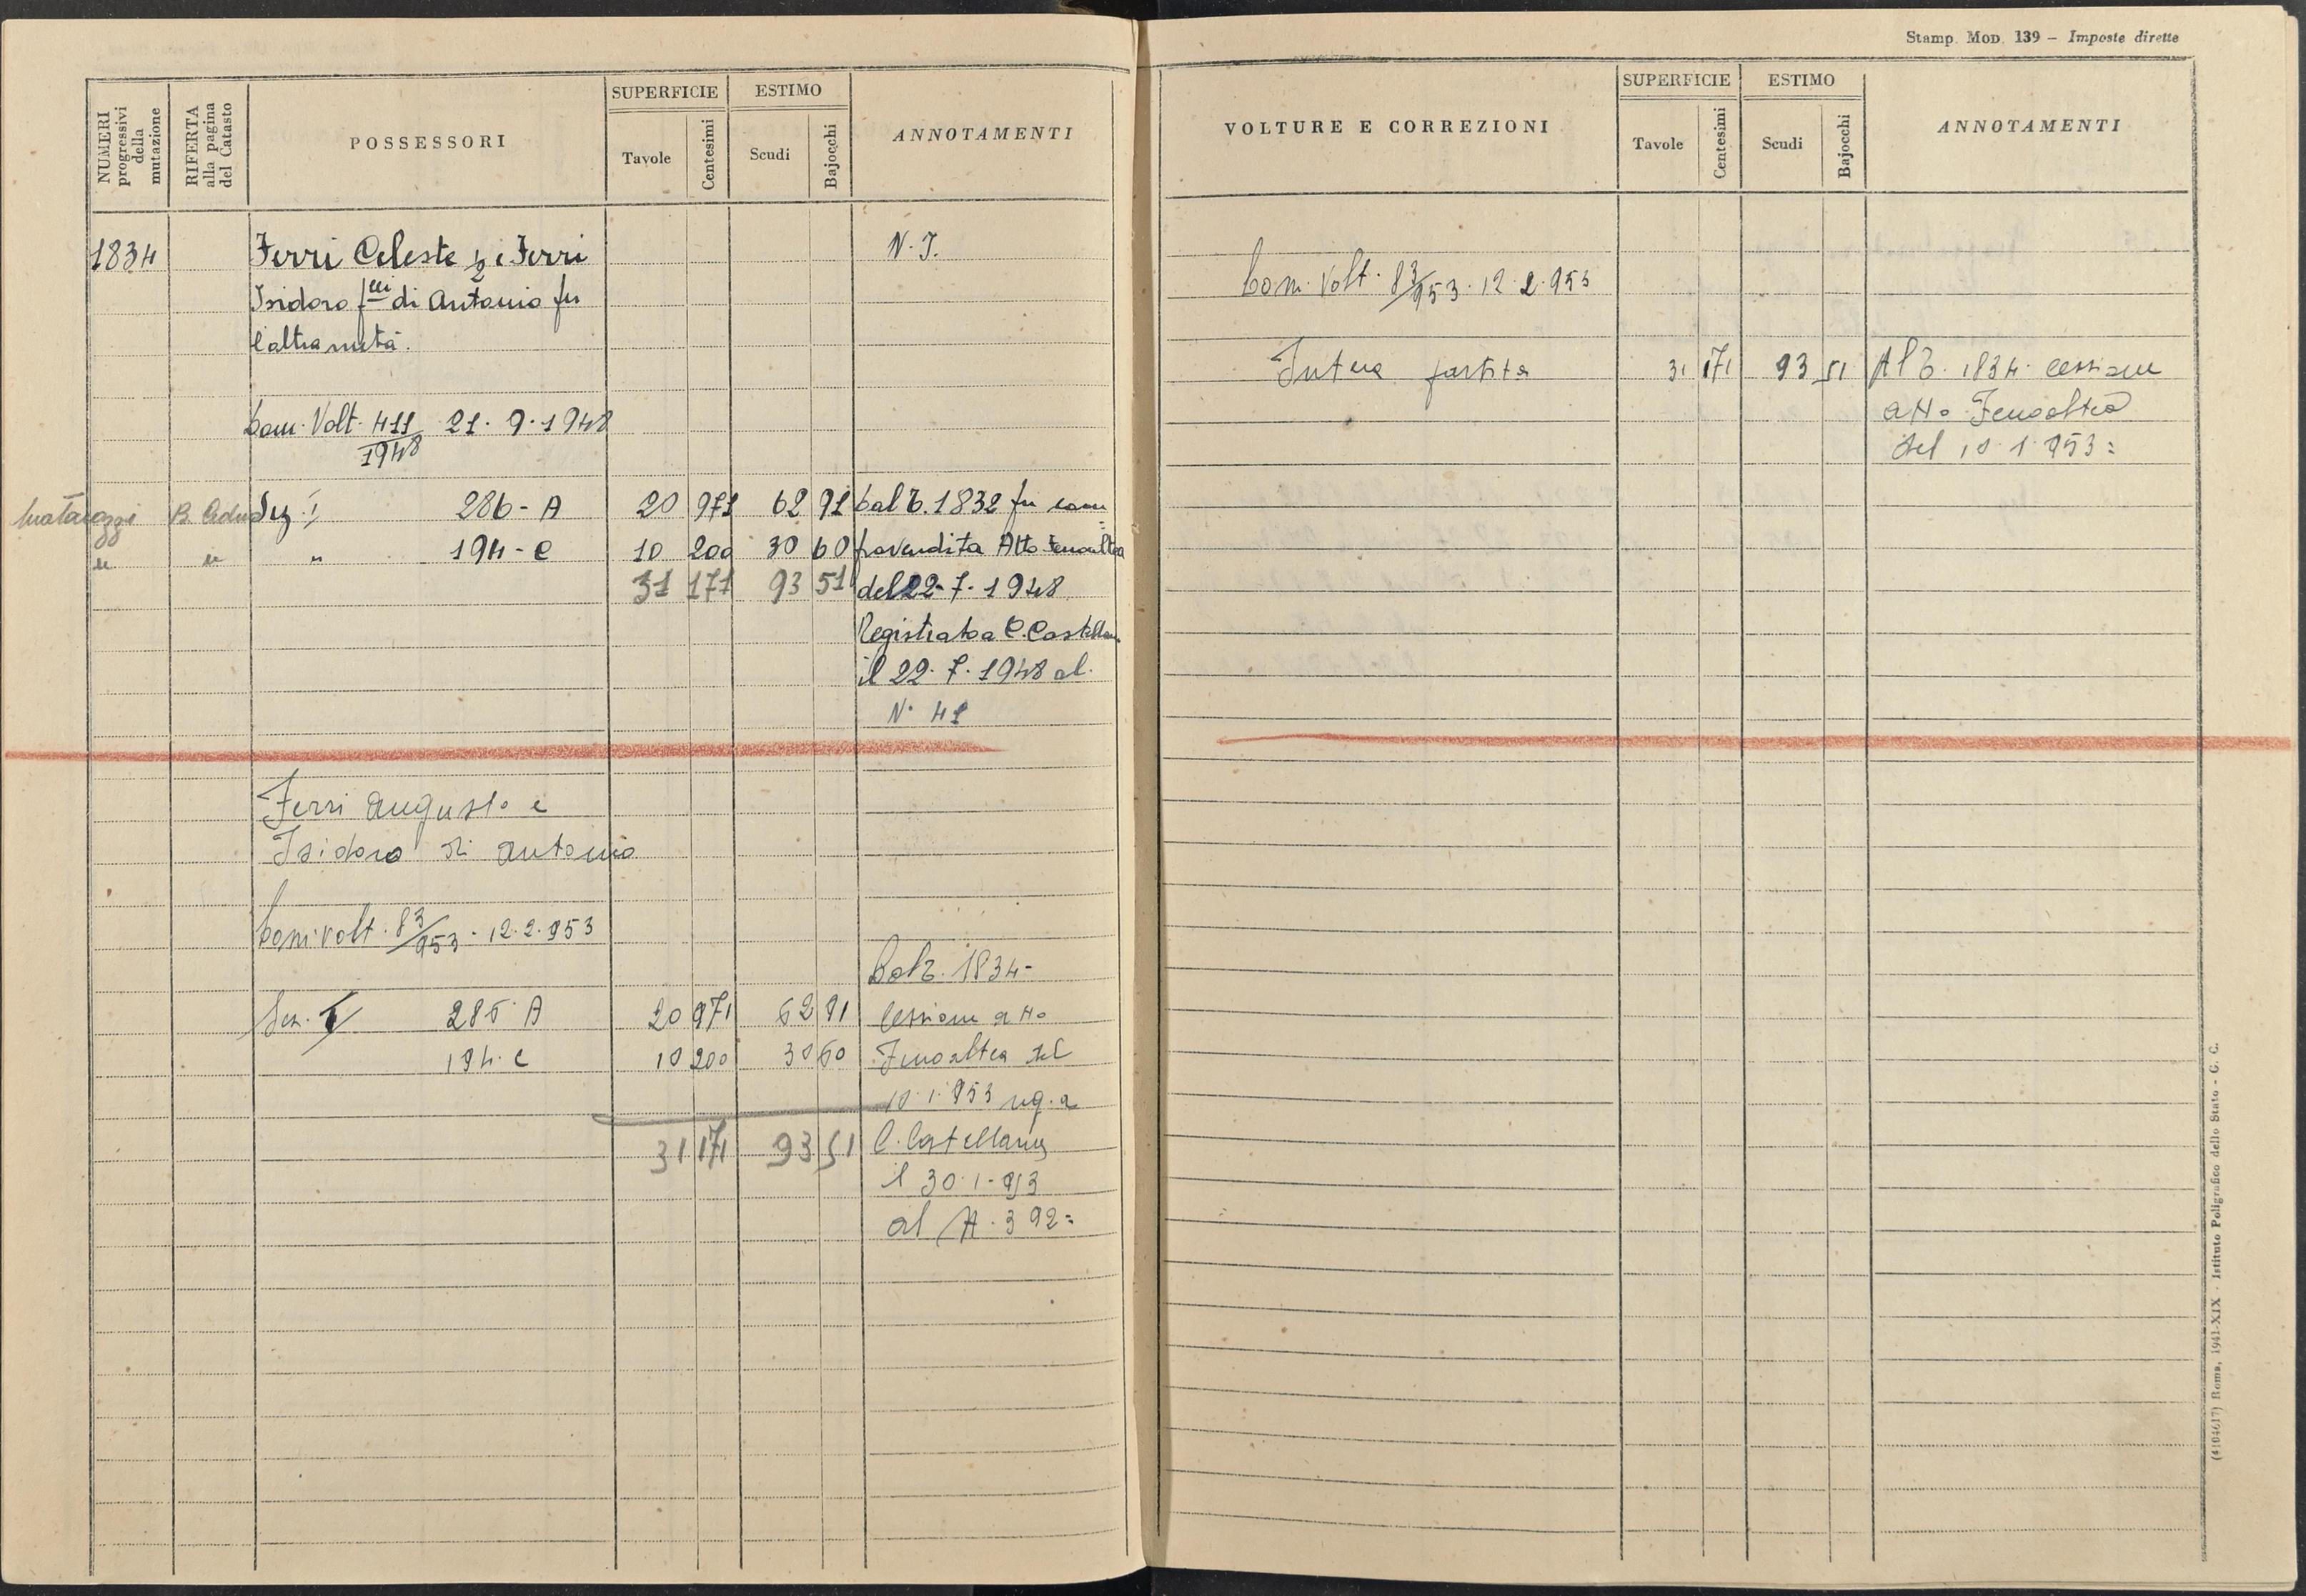 NUMERI progressivi della mutazione
RIFERTA alla pagina del Catasto
POSSESSORI
SUPERFICIE
Tavole
Centesimi
ESTIMO
Scudi
Bajocchi
ANNOTAMENTI
1834 Ferri Celeste ½ e Ferri N. I.
Isidoro flli di Antonio fu
l'altra metà.
Com. Volt. 411/1948 21. 9. 1948
B. Ceduo Sez. I 286 - A 20 971 62 91 Dal B. 1832 fu com
" " " 194 - C 10 200 30 60 pravendita Atto Fenoaltea
31 171 93 51 del 22-7-1948
Registrato a C. Castellana
il 22. 7. 1948 al
N. 41
Ferri Augusto e
Isidoro di Antonio
Com. Volt. 83/953 - 12.2.953
Dal B. 1834-
Sez. I 286 A 20 971 62 91 Cessione atto
194. C 10 200 30 60 Fenoaltea del
10.1.953 reg. a
31 171 93 51 C. Castellana
il 30-1-953
al N. 392=
Stamp. Mod. 139 — Imposte dirette
VOLTURE E CORREZIONI
SUPERFICIE
Tavole
Centesimi
ESTIMO
Scudi
Bajocchi
ANNOTAMENTI
Com. Volt. 83/953 - 12.2.953
Intera partita 31 171 93 51 Al B. 1834 cessione
atto Fenoaltea
del 10.1.953=
(4104617) Roma, 1941-XIX - Istituto Poligrafico dello Stato - G. C.